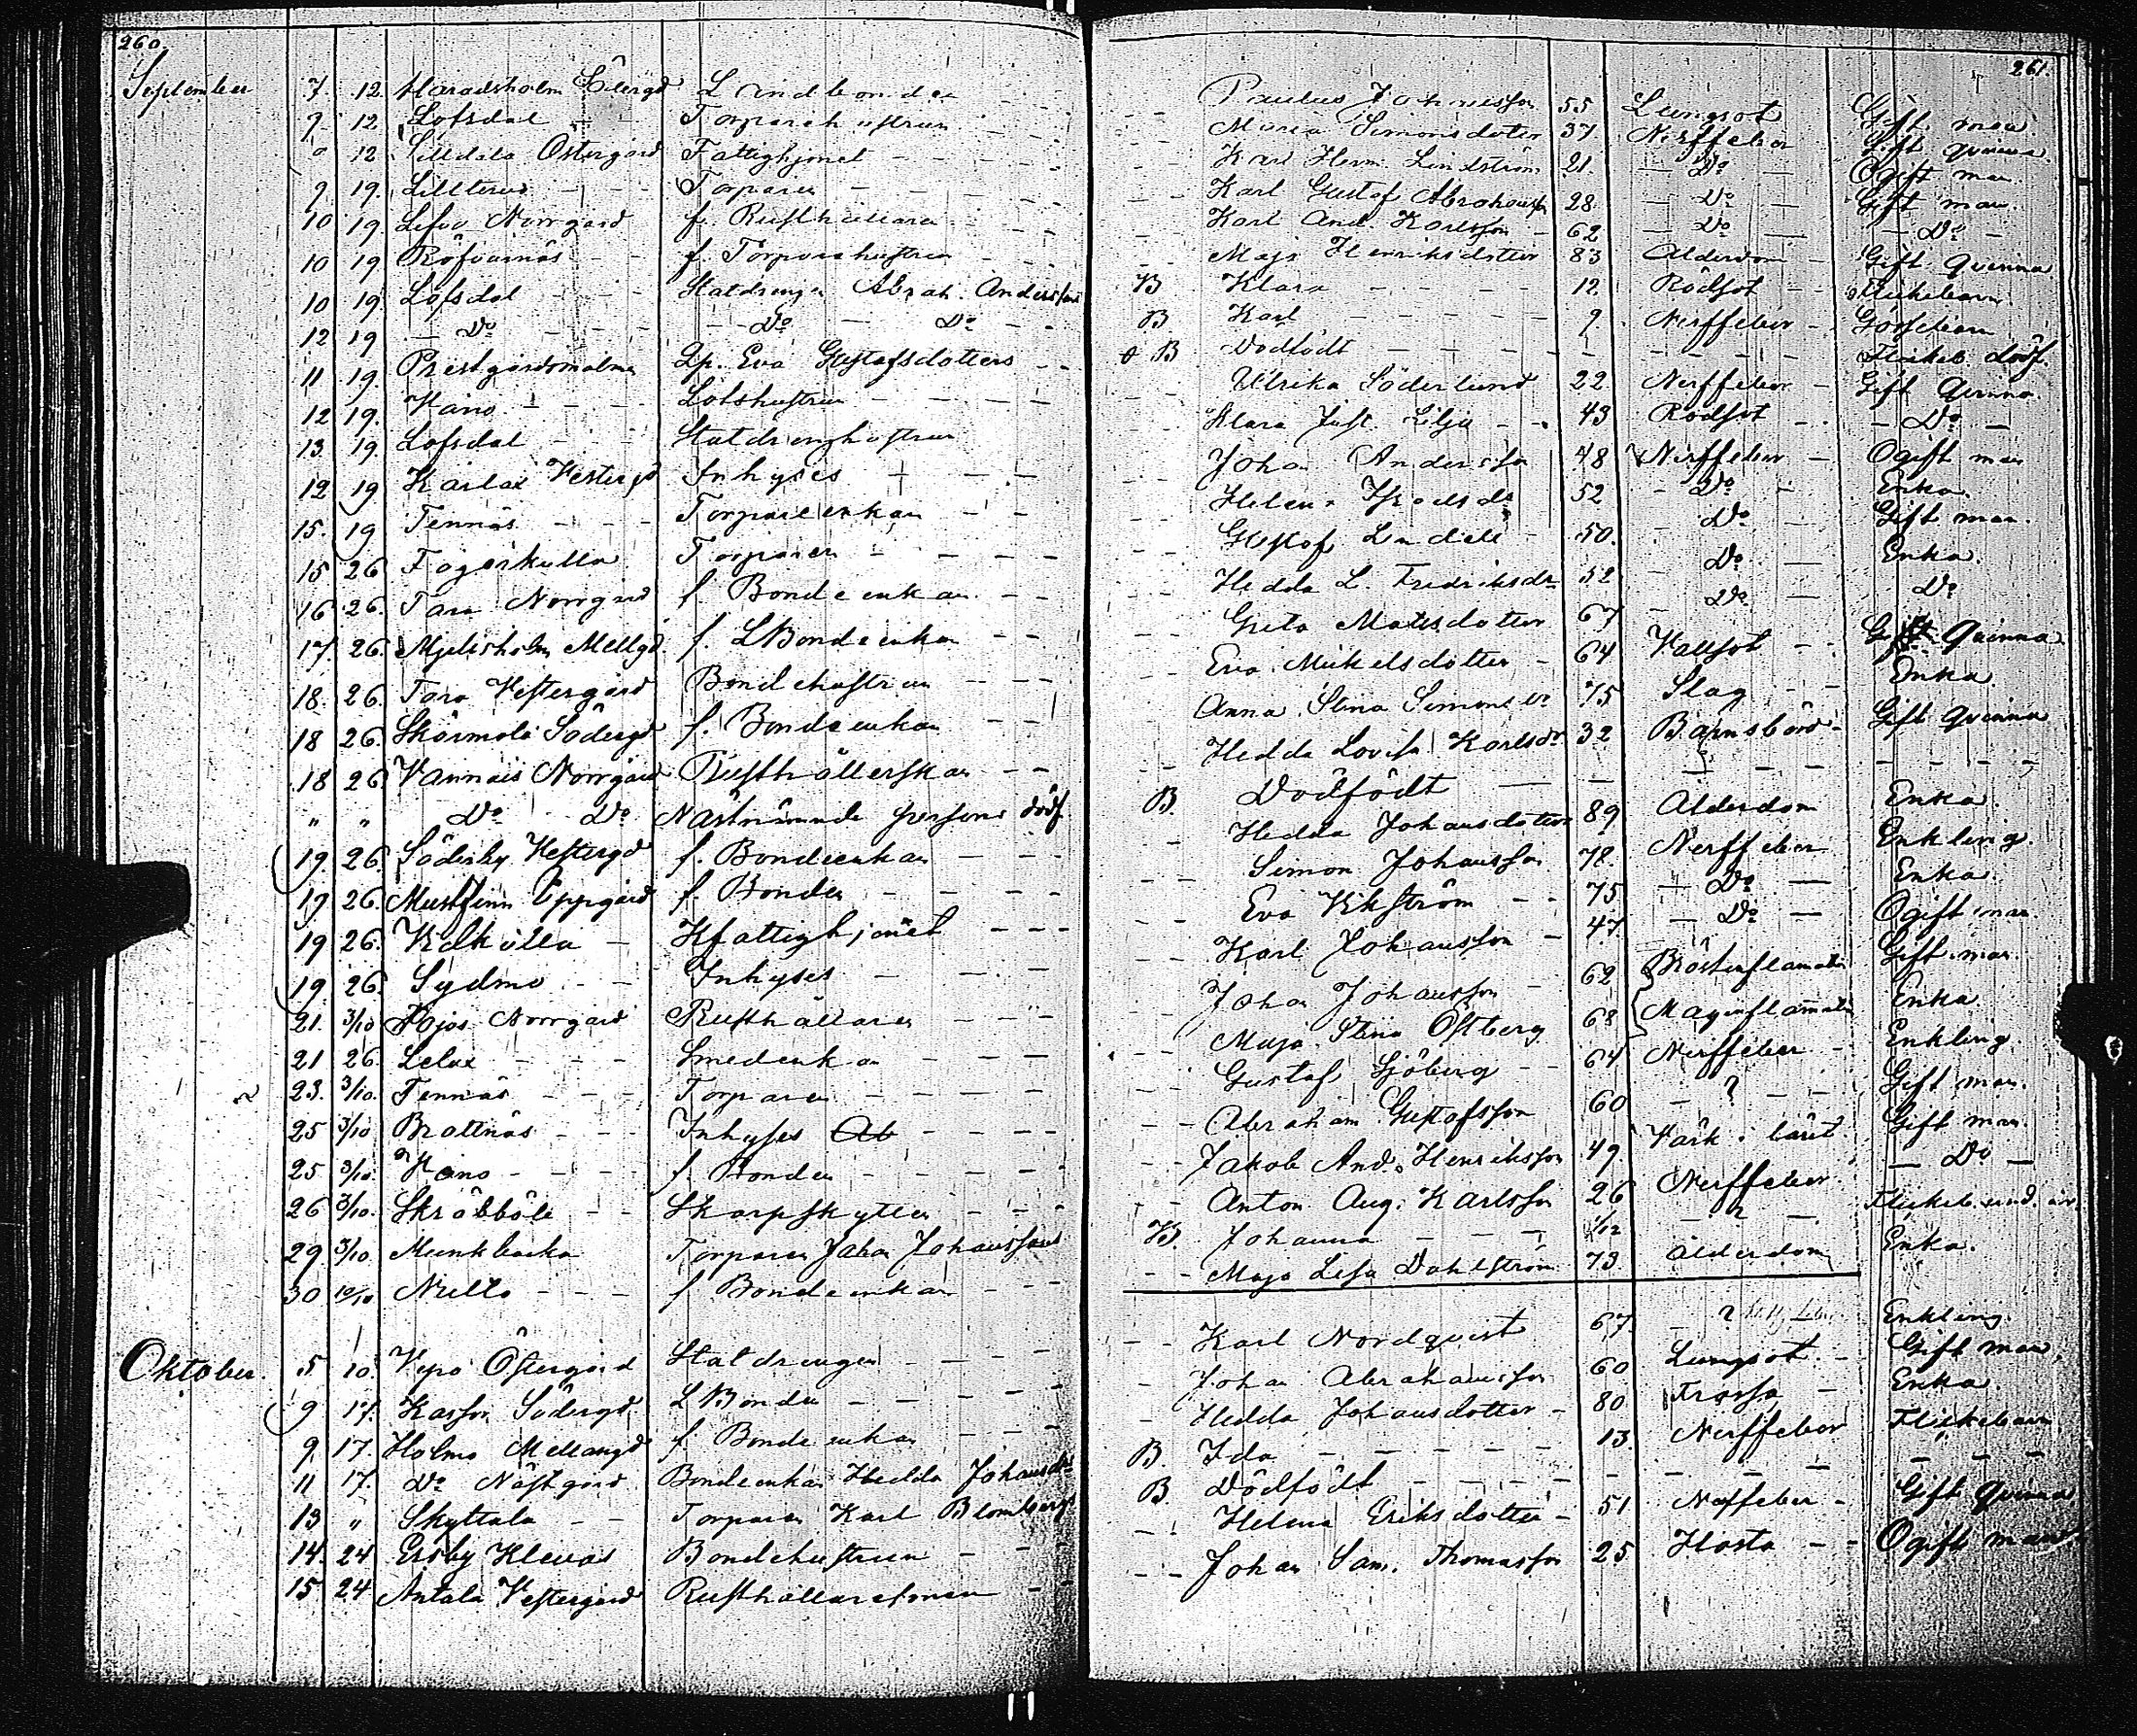 260.
September 7. 12. Haradsholm Öfergd Landbonden
9. 12 Lofsdal Torparehustrun
" 12 Lilldala Östergård Fattighjonet
9 19. Lillterus Torparen
10 19. Lefvo Norrgård f. Rusthållaren
10 19 Röfvarnäs f. Torparehustrun
10 19 Lofsdal Statdrengen Abrah. Anderssons
12 19 Do Do Do
11 19. Prestgårdsmalmen Qp. Eva Gustafsdotters
12 19. Våno Lotshustrun
13. 19 Lofsdal Statdrengshustrun
12 19 Karlax Vestergd Inhyses
15. 19 Tennäs Torpareenkan
15 26 Fagerkulla Torparen
16 26. Tara Norrgård f. Bondeenkan
17. 26. Mjelisholm Mellgd. f. LBondeenkan
18. 26. Tara Vestergård Bondehustrun
18 26. Skärmola Södergd f. Bondeenkan
18 26. Vannais Norrgård Rusthållerskan
" " Do Do Nästnämnde persons dödf.
19. 26. Söderby Vestergd f. Bondeenkan
19 26. Mustfinn Uppgård f. Bonden
19 26. Vidkulla Kfattighjonet
19. 26. Sydmo Inhyses
21. 3/10 Pojos Norrgård Rusthållaren
21 26. Lelax Smedenkan
23. 3/10. Tennäs Torparen
25 3/10 Brattnäs Inhyses Ab
25 3/10. Våno f. Bonden
26 3/10. Skräbböle Skarpskytten
29. 3/10 Munkbacka Torparen Johan Johanssons
30 10/10 Nulto f Bondeenkan
Oktober. 5 10. Vepo Östergård Statdrengen
9 17. Kassor Södergd LBonden
9. 17. Holmo Mellangd f. Bondeenkan
11 17. Do Nästgård Bondeenkan Hedda Johansdrs
13 " Skyttala Torparen Karl Blombergs
14. 24 Ersby Klevas Bondehustrun
15 24 Antala Vestergård Rusthållaresonen
261.
Paulus Johansson 55 Lungsot Gift man
Maria Simonsdotter 37. Nerffeber Gift qvinna.
Karl Herm. Lindström 21. Do Ogift man
Karl Gustaf Abrahamsson 28. Do Gift man.
Karl And. Karlsson 62 Do Do
Maja Henriksdotter 83 Ålderdom Gift qvinna
B Klara 12. Rödsot Flickebarn
B Karl 9. Nerffeber Gossebarn
B Dödfödt Flickeb. dödf.
Ulrika Söderlund 22 Nerffeber Gift qvinna
Klara Just. Lilja 43 Rödsot Do
Johan Andersson 48 Nerffeber Ogift man
Helena Israelsdr 52 Do Enka.
Gustaf Lindell 50. Do Gift man.
Hedda L. Fredriksdr 52 Do Enka.
Greta Matsdotter 67 Do Do
Eva Mickelsdotter 64 Kallsot Gift Qvinna
Anna Stina Simonsdr 75 Slag Enka.
Hedda Lovisa Karlsdr 32 Barnsbörd Gift qvinna
B. Dödfödt
Hedda Johansdotter 89 Ålderdom Enka.
Simon Johansson 78. Nerffeber Enkling.
Eva Ekström 75 Do Enka.
Karl Johansson 47. Do Ogift man.
Johan Johansson 62 Bröstinflamation Gift man.
Maja Stina Östberg 68 Mageninflamation Enka
Gustaf Sjöberg 64 Nerffeber Enkling.
Abraham Gustafsson 60 ? Gift man.
Jakob And. Henriksson 49. Värk i låret Gift man.
Anton Aug. Karlsson 26 Nerffeber Do
B. Johanna 1/12 ? Flickeb. und. år.
Maja Lisa Dahlström 73 Ålderdom Enka.
Karl Nordqvist 67. ? Enkling.
Johan Abrahamsson 60 Lungsot. Gift man.
Hedda Johansdotter 80 Frossa Enka.
B. Ida 13. Nerffeber Flickebarn
B. Dödfödt
Helena Eriksdotter 51 Nerffeber Gift qvinna
Johan Sam. Thomasson 25. Hosta Ogift man